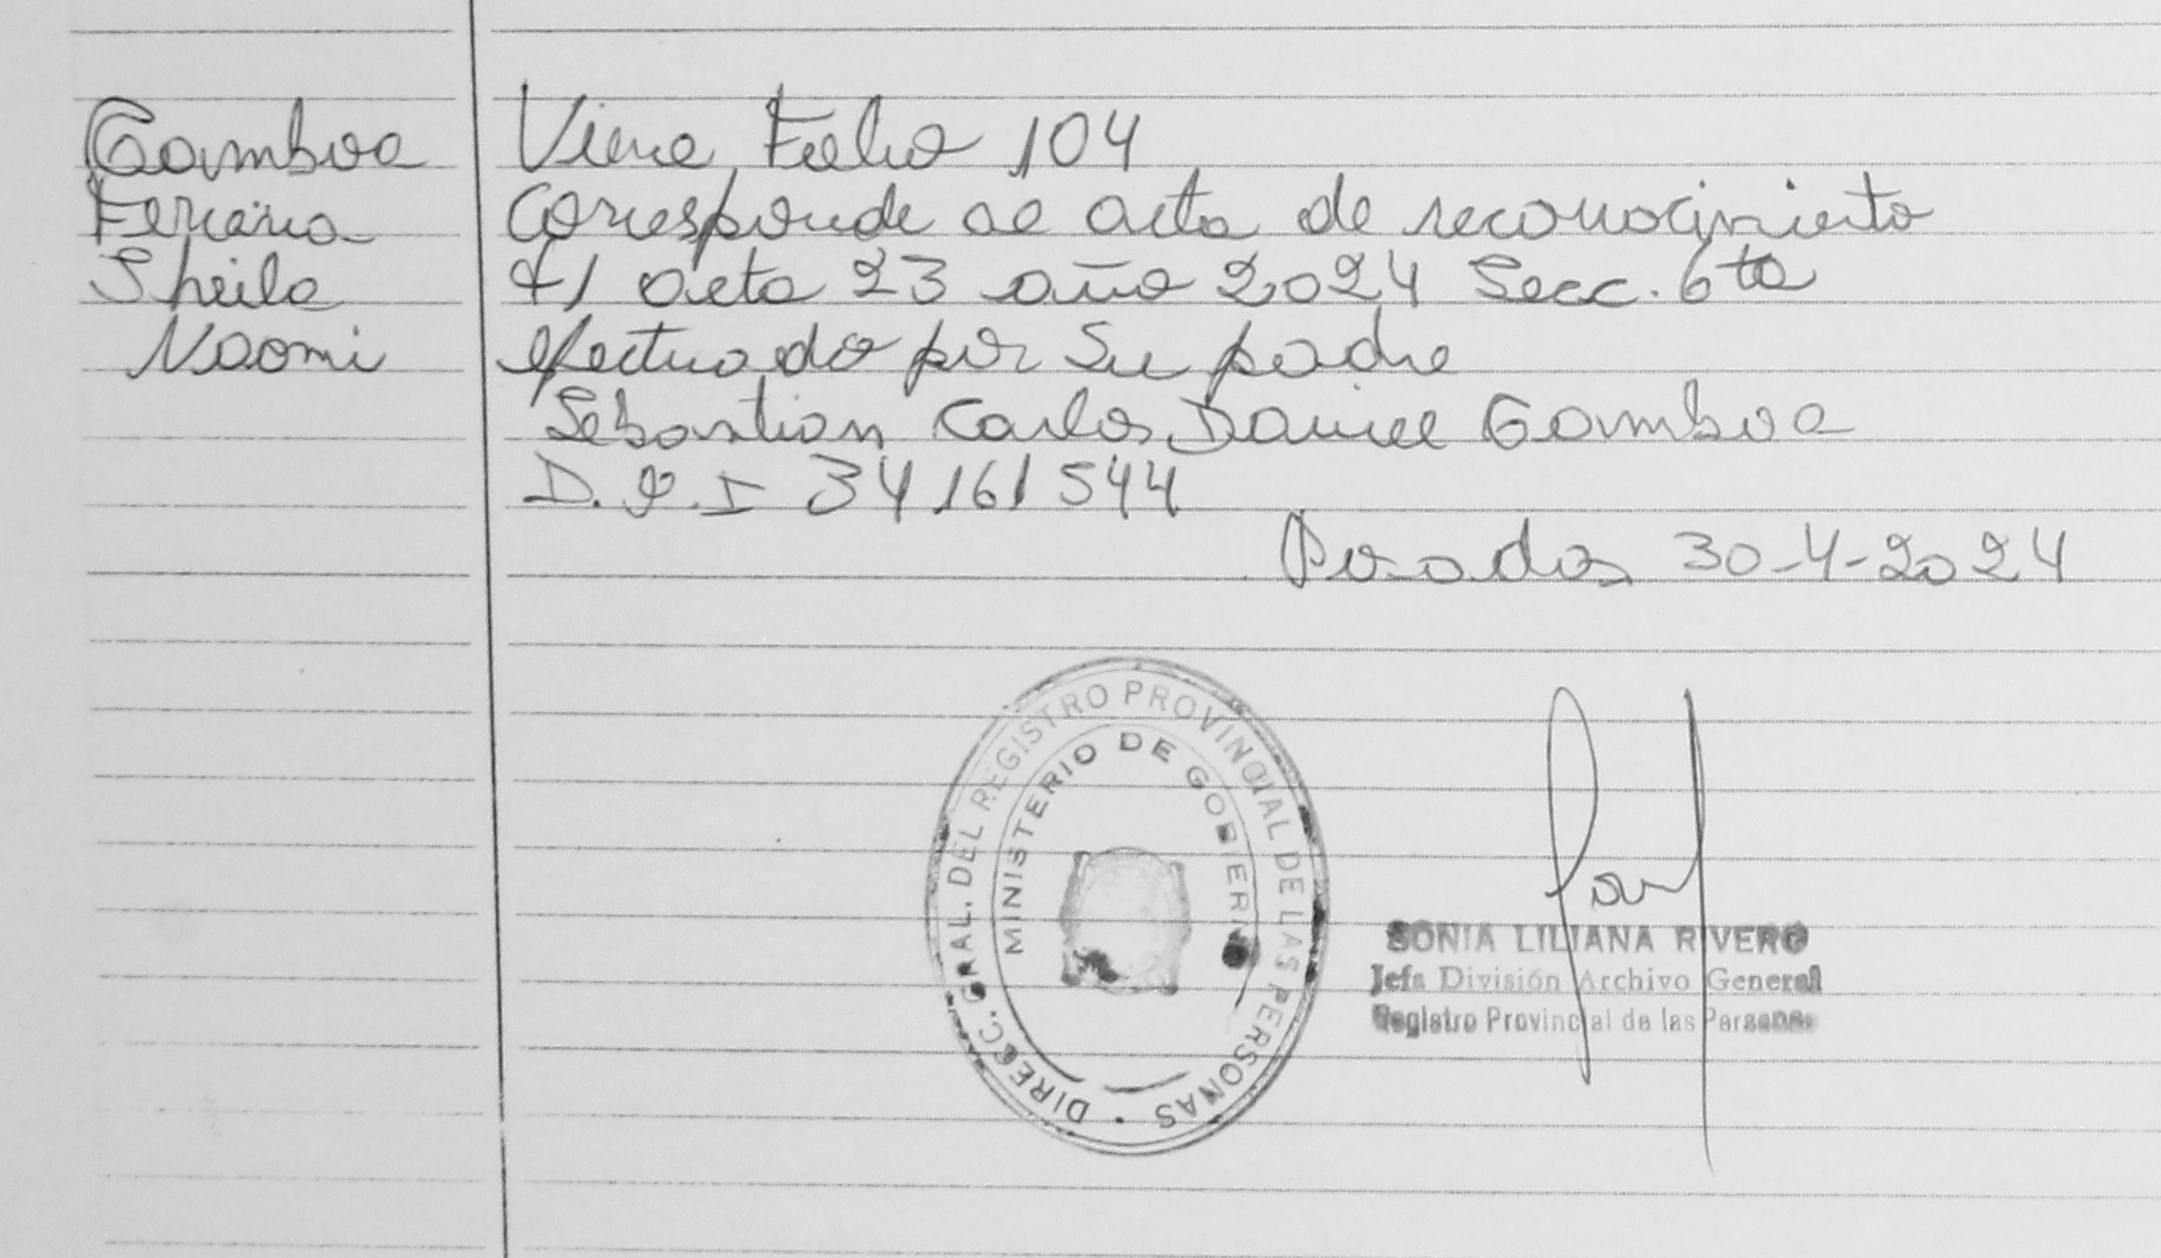 Gamboa
Ferreira
Sheila
Naomi
Viene Folio 104
Corresponde al acta de reconocimiento
t1 acta 23 año 2024 Secc. 6ta
efectuado por su padre
Sebastian Carlos Daniel Gamboa
D.N.I 34161544
Posadas 30-4-2024
DIRECC. GRAL. DEL REGISTRO PROVINCIAL DE LAS PERSONAS
MINISTERIO DE GOBIERNO
SONIA LILIANA RIVERO
Jefa División Archivo General
Registro Provincial de las Personas